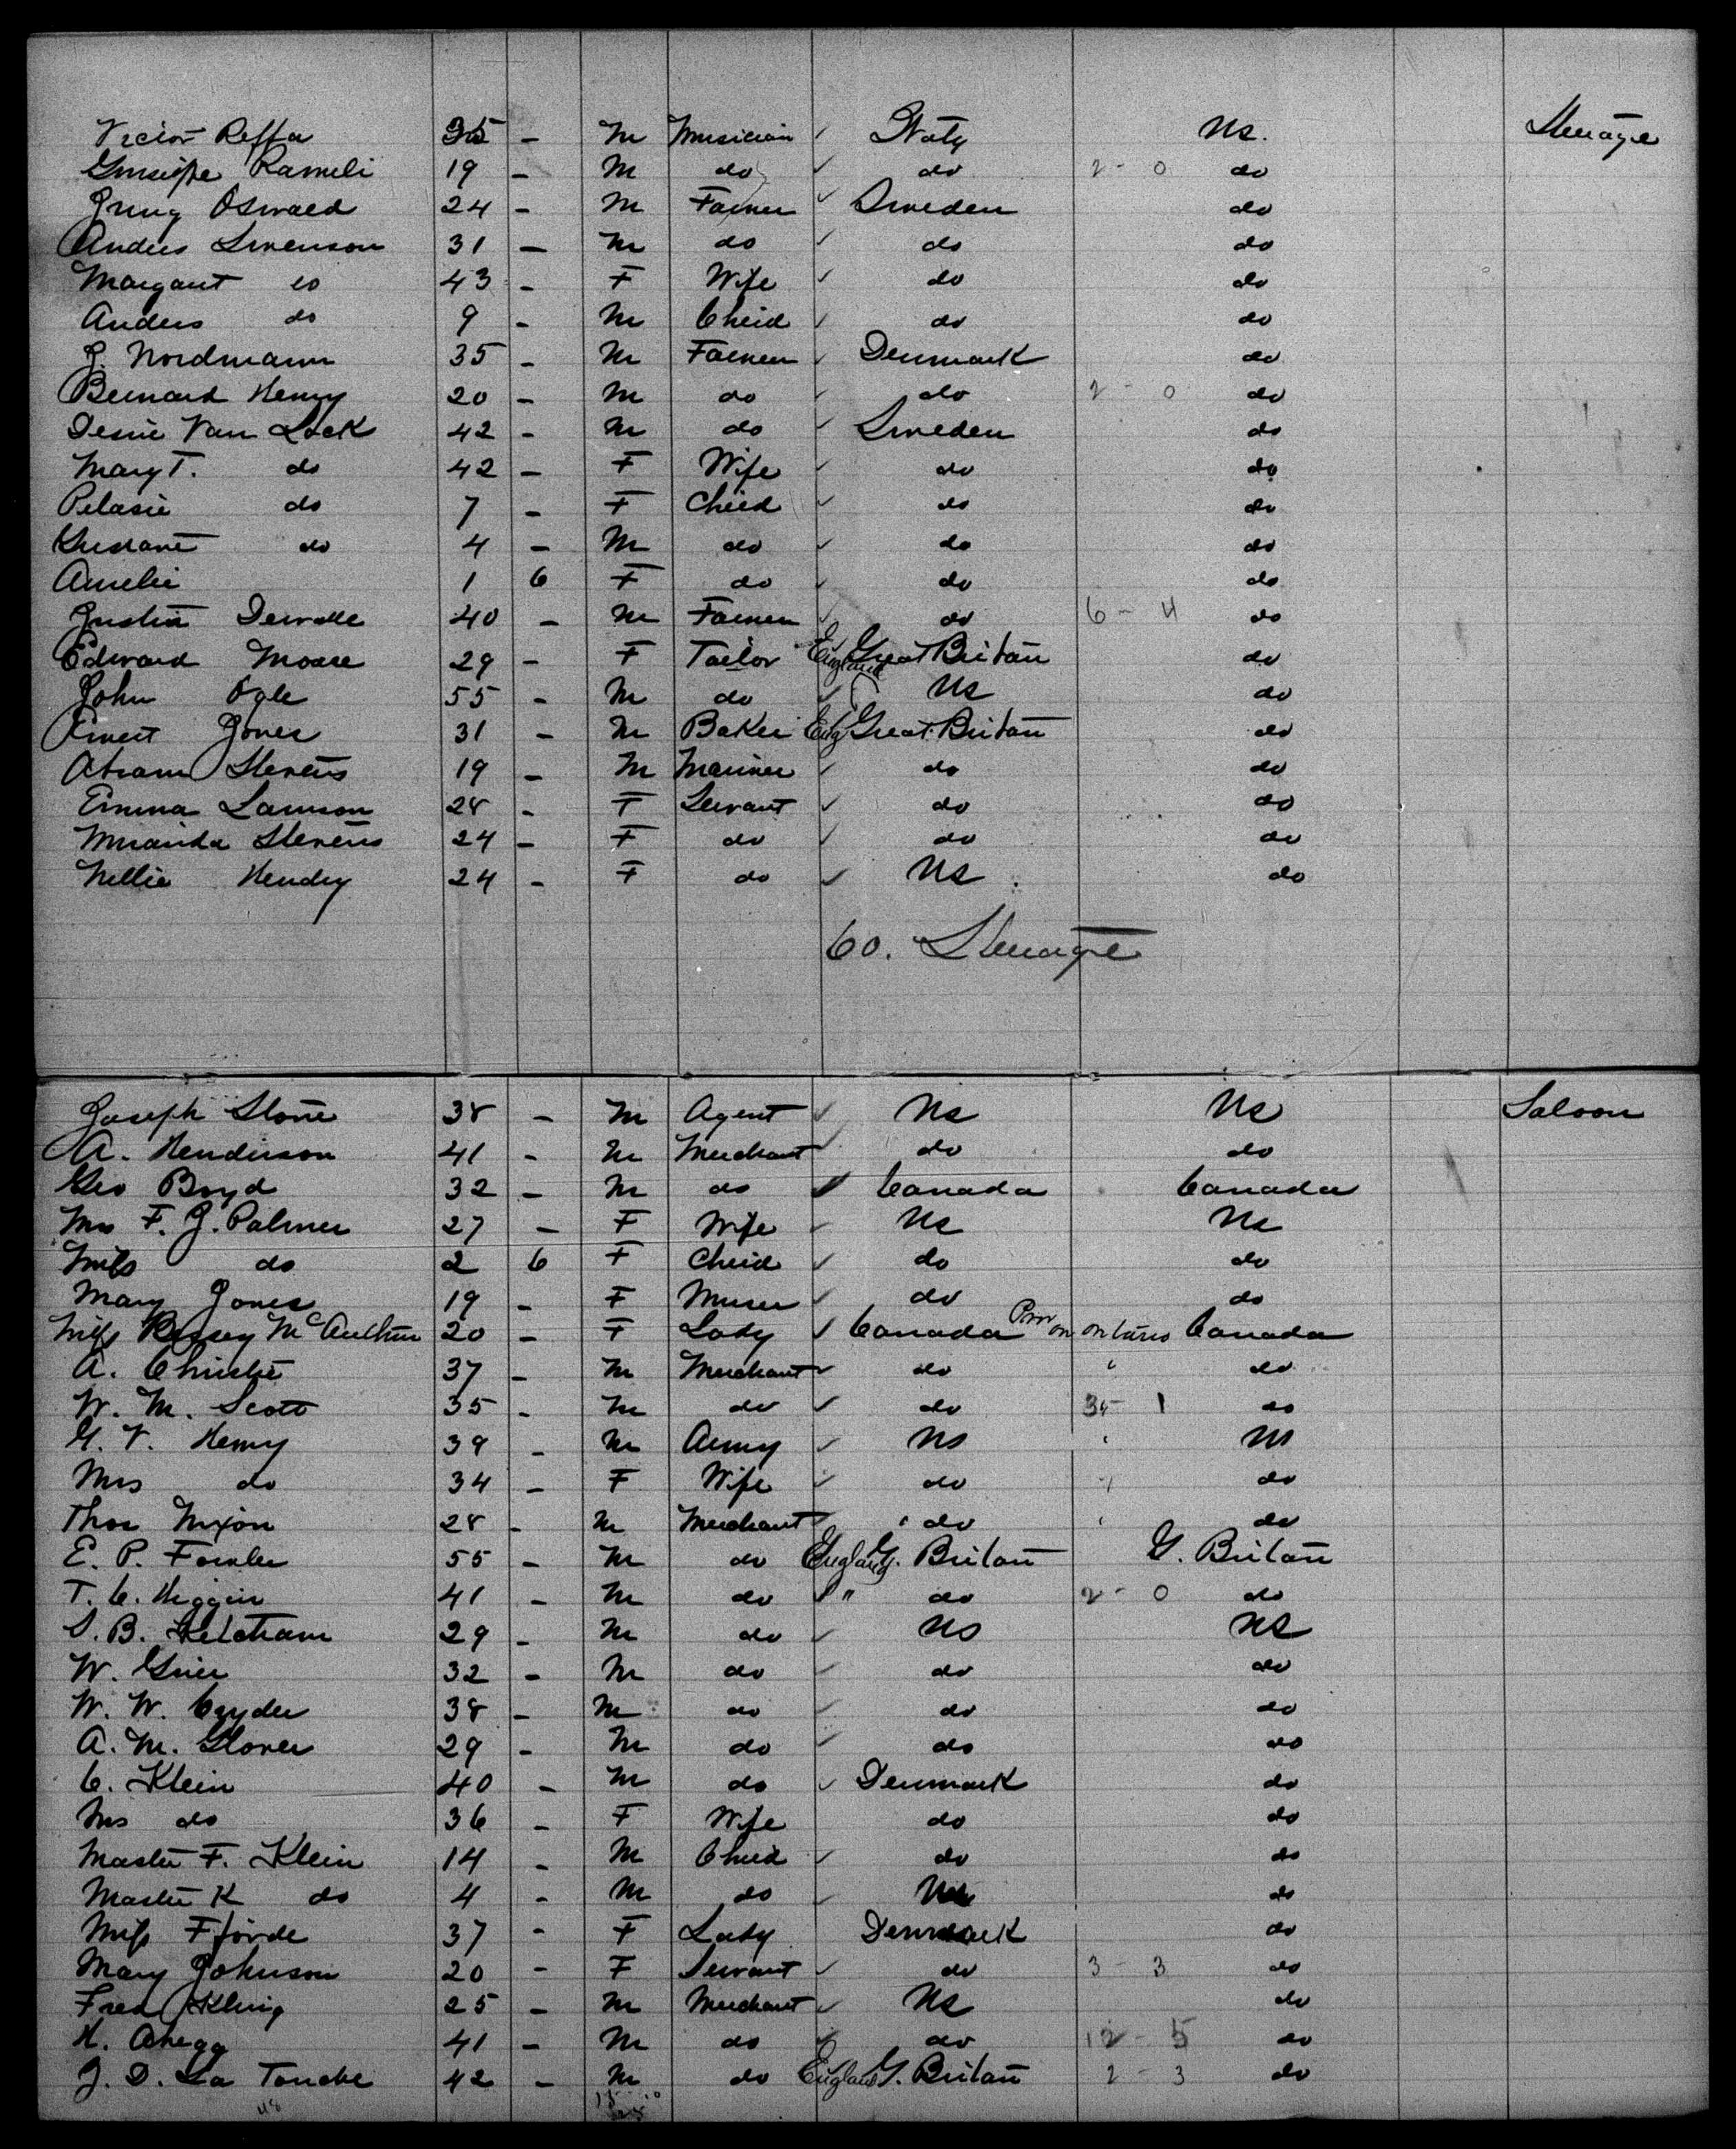 Victor Reffa 35 - M Musician ✓ Italy US. Steerage
Guiseppe Rameli 19 - M do ✓ do 2 - 0 do
Jung Oswald 24 - M Farmer ✓ Sweden do
Anders Swenson 31 - M do ✓ do do
Margaret do 43 - F Wife ✓ do do
Anders do 9 - M Child ✓ do do
J. Nordmann 35 - M Farmer ✓ Denmark do
Bernard Henry 20 - M do ✓ do 2 - 0 do
Van Lack 42 - M do ✓ Sweden do
Mary T. do 42 - F Wife ✓ do do
Pelasie do 7 - F Child ✓ do do
Gustave do 4 - M do ✓ do do
Amelie 1 6 F do ✓ do do
Justin 40 - M Farmer ✓ do 6 - 4 do
Edward Moore 29 - F Tailor England Great Britain do
John Ogle 55 - M do ✓ US do
Jones 31 - M Baker Eng Great Britain do
Abram Stevens 19 - M Mariner ✓ do do
Emma Lamson 28 - F Servant ✓ do do
Miranda Stevens 24 - F do ✓ do do
Nellie Hendry 24 - F do ✓ US. do
60. Steerage
Joseph Stone 38 - M Agent ✓ US US Saloon
A. Henderson 41 - M Merchant ✓ do do
Geo Boyd 32 - M do ✓ Canada Canada
Mrs F. J. Palmer 27 - F Wife ✓ US US
Miss do 2 6 F Child ✓ do do
Mary Jones 19 - F Nurse ✓ do do
Miss Bessey McArthur 20 - F Lady ✓ Canada Prov on ontario Canada
A. Christie 37 - M Merchant ✓ do " do
W. M. Scott 35 - M do ✓ do 35 - 1 do
G. V. Henry 39 - M Army ✓ US US
Mrs do 34 - F Wife ✓ do do
Thos Nixon 28 - M Merchant ✓ do do
E. P. Fowler 55 - M do England G. Britain G. Britain
T. C. Higgin 41 - M do " do 2 - 0 do
S. B. Ketcham 29 - M do ✓ US US
W. Grier 32 - M do ✓ do do
W. W. Cryder 38 - M do ✓ do do
A. M. Glover 29 - M do ✓ do do
C. Klein 40 - M do ✓ Denmark do
Mrs do 36 - F Wife do do
Master F. Klein 14 - M Child ✓ do do
Master K do 4 - M do ✓ US do
Miss Fjörde 37 - F Lady Denmark do
Mary Johnson 20 - F Servant ✓ do 3 - 3 do
Fred Kling 25 - M Merchant ✓ US do
H. Abegg 41 - M do ✓ do 12 - 5 do
J. D. La Touche 42 - M do England G. Britain 2 - 3 do
48